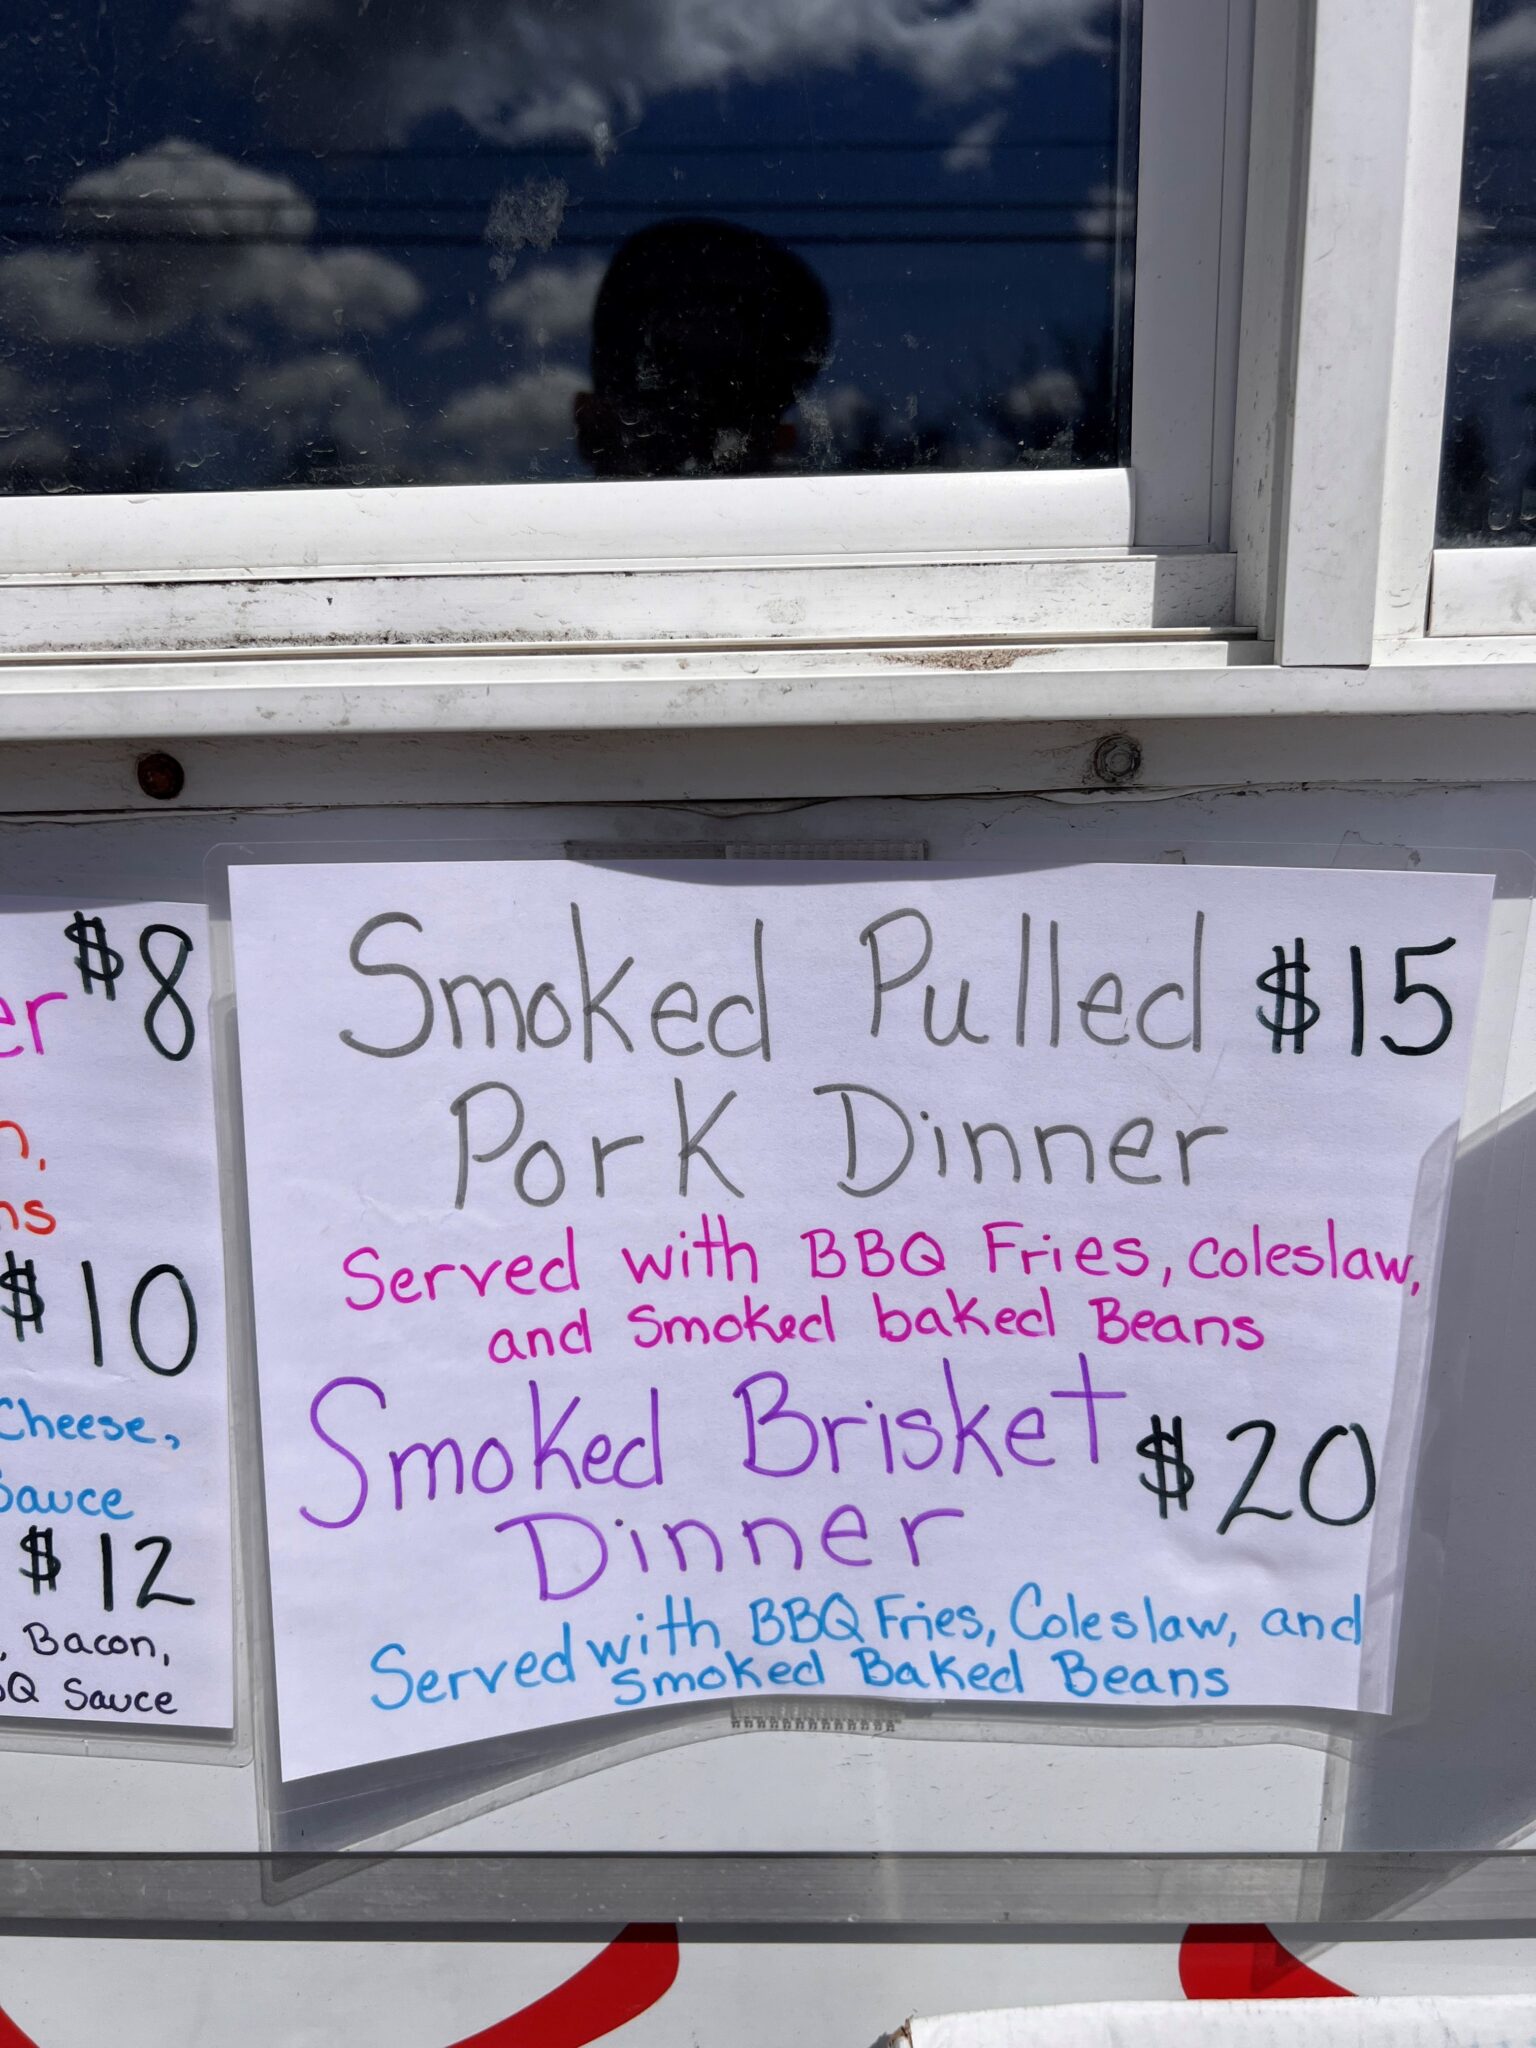 $8
er
n,
ns
$10
Cheese,
Sauce
$12
, Bacon,
Q Sauce
Smoked Pulled $15
Pork Dinner
Served with BBQ Fries, coleslaw,
and Smoked baked Beans
Smoked Brisket $20
Dinner
Served with BBQ Fries, Coleslaw, and
Smoked Baked Beans